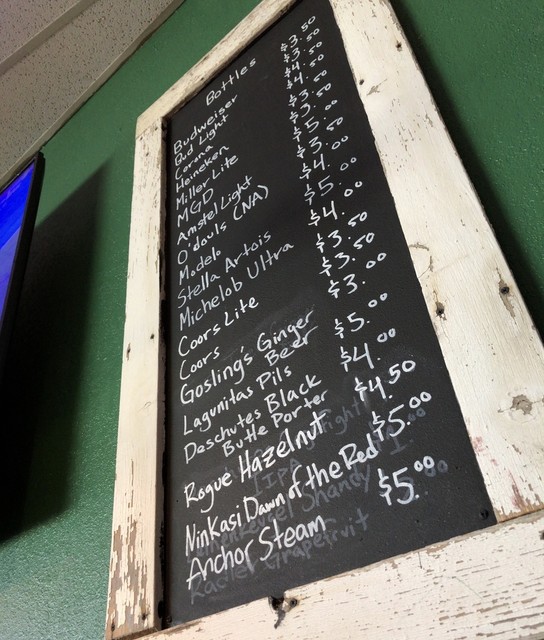 Bottles
Budweiser $3.50
Bud Light $3.50
Corona $4.50
Heineken $4.50
Miller Lite $3.50
MGD $3.50
Amstel Light $5.00
O'douls (NA) $3.50
Modelo $4.00
Stella Artois $5.00
Michelob Ultra $4.00
Coors Lite $3.50
Coors $3.50
Gosling's Ginger $3.00
Beer
Lagunitas Pils $5.00
Deschutes Black $4.00
Butte Porter
Rogue Hazelnut $4.50
Ninkasi Dawn of the Red $5.00
Anchor Steam $5.00
Shandy
Radler Grapefruit